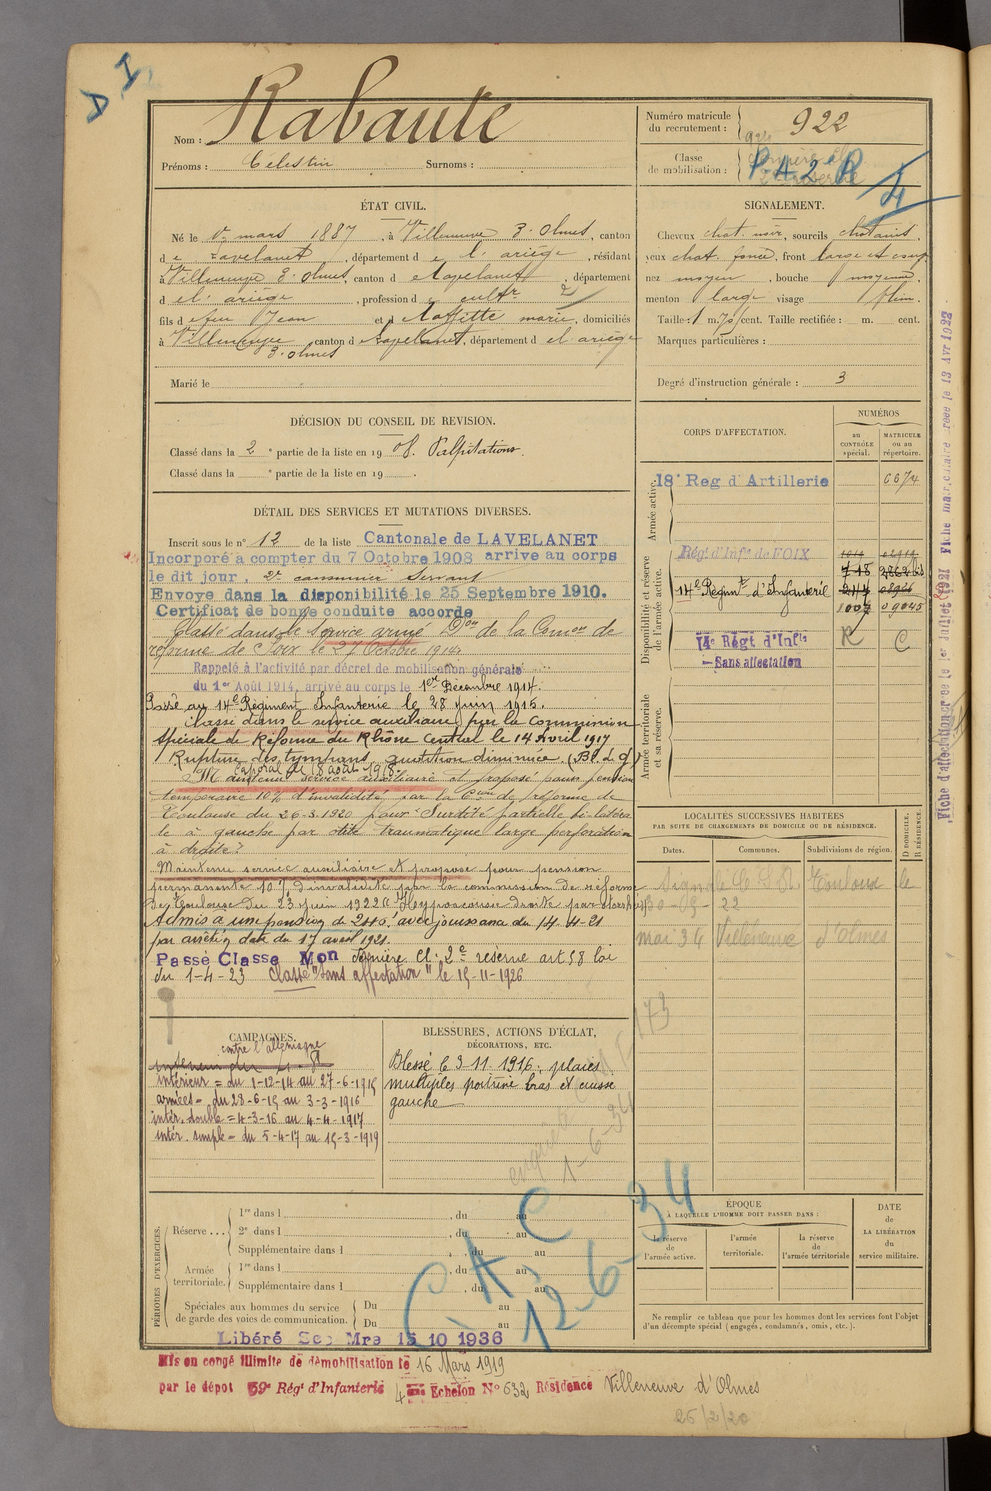 Nom : Rabaute
Prénoms : Célestin Surnoms :
Numéro matricule du recrutement : 922
Classe de mobilisation :
P.A 2 R
ÉTAT CIVIL.
Né le mars 1887, à Villeneuve d'Olmes, canton
de Lavelanet, département de l'ariège, résidant
à Villeneuve d'Olmes, canton de Lavelanet, département
d el'ariège, profession de cultr
fils de feu Jean et de Laffitte marie, domiciliés
à Villeneuve d'olmes canton de Lavelanet, département d el'ariège
Marié le
SIGNALEMENT.
Cheveux chat. noir, sourcils chatains,
yeux chat. foncé, front large et
nez moyen, bouche moyenne,
menton large visage plein.
Taille : 1 m. 70 cent. Taille rectifiée : m. cent.
Marques particulières :
Degré d'instruction générale : 3
DÉCISION DU CONSEIL DE REVISION.
Classé dans la 2e partie de la liste en 1908. Palpitations.
Classé dans la e partie de la liste en 19
CORPS D'AFFECTATION.
NUMÉROS
au CONTRÔLE spécial.
MATRICULE ou au répertoire.
Armée active.
18e Reg d'Artillerie 6674
Disponibilité et réserve de l'armée active.
Régt d'Infie de FOIX
14e Regimt d'Infanterie
1007 09045
14e Régt d'Infie
— Sans affectation
R C
Armée territoriale et sa réserve.
DÉTAIL DES SERVICES ET MUTATIONS DIVERSES.
Inscrit sous le n° 12 de la liste Cantonale de LAVELANET
Incorporé à compter du 7 Octobre 1908 arrivé au corps
le dit jour, 2e cannonier servant
Envoyé dans la disponibilité le 25 Septembre 1910.
Certificat de bonne conduite accordé
Classé dans le service armé Don de la Comon de
réforme de Foix le 27 Octobre 1914.
Rappelé à l'activité par décret de mobilisation générale
du 1er Août 1914, arrivé au corps le 1er Décembre 1914.
Passé au 14e Régiment Infanterie le 28 juin 1915.
Classé dans le service auxiliaire par la Commission
Spéciale de Réforme du Rhône Central le 14 Avril 1917
Rupture des tympans audition diminuée
Caporal le 18 août 1918.
Maintenu service auxiliaire et proposé pour pension
temporaire 10% d'invalidité par la Con de réforme de
Toulouse du 26-3-1920 pour "Surdité partielle bi-latéra
le à gauche par otite traumatique large perforation
à droite"
Maintenu service auxiliaire et proposé pour pension
permanente 10% d'invalidité par la commission de réforme
de Toulouse du 23 juin 1922 Hypoacousie droite par
Admis à une pension de 240f avec jouissance du 14-4-21
par arrêté en date du 17 avril 1921.
Passé Classe Mon dernière Cl. 2e réserve art 58 loi
du 1-4-23 Classé "sans affectation" le 15-11-1926
LOCALITÉS SUCCESSIVES HABITÉES
PAR SUITE DE CHANGEMENTS DE DOMICILE OU DE RÉSIDENCE.
Dates. Communes. Subdivisions de région. D DOMICILE, R RÉSIDENCE.
Signalé C S R Toulouse le
30-05-22
mai 34 Villeneuve d'Olmes
CAMPAGNES.
contre l'allemagne
intérieur = du 1-12-14 au 27-6-1915
armées = du 28-6-15 au 3-3-1916
intér. double = 4-3-16 au 4-4-1917
intér. simple = du 5-4-17 au 15-3-1919
BLESSURES, ACTIONS D'ÉCLAT,
DÉCORATIONS, ETC.
Blessé le 3-11-1916 : plaies
multiples poitrine bras et cuisse
gauche
1-6-34
PÉRIODES D'EXERCICES.
Réserve ...
1re dans l , du au
2e dans l , du au
Supplémentaire dans l , du au
Armée territoriale.
1re dans l , du au
Supplémentaire dans l , du au
Spéciales aux hommes du service de garde des voies de communication.
Du au
Du au
C A C
12-6-34
ÉPOQUE
À LAQUELLE L'HOMME DOIT PASSER DANS :
la réserve de l'armée active.
l'armée territoriale.
la réserve de l'armée territoriale
DATE DE LA LIBÉRATION du service militaire.
Ne remplir ce tableau que pour les hommes dont les services font l'objet
d'un décompte spécial (engagés, condamnés, omis, etc.).
Libéré Sce Mre 15 10 1936
Mis en congé illimité de démobilisation le 16 Mars 1919
par le dépôt 59e Régt d'Infanterie 4ème Echelon N° 632 Résidence Villeneuve d'Olmes
26/2/20
Fiche d'affectation créée le 1er Juillet 1921 Fiche matriculaire créée le 13 Avr 1922